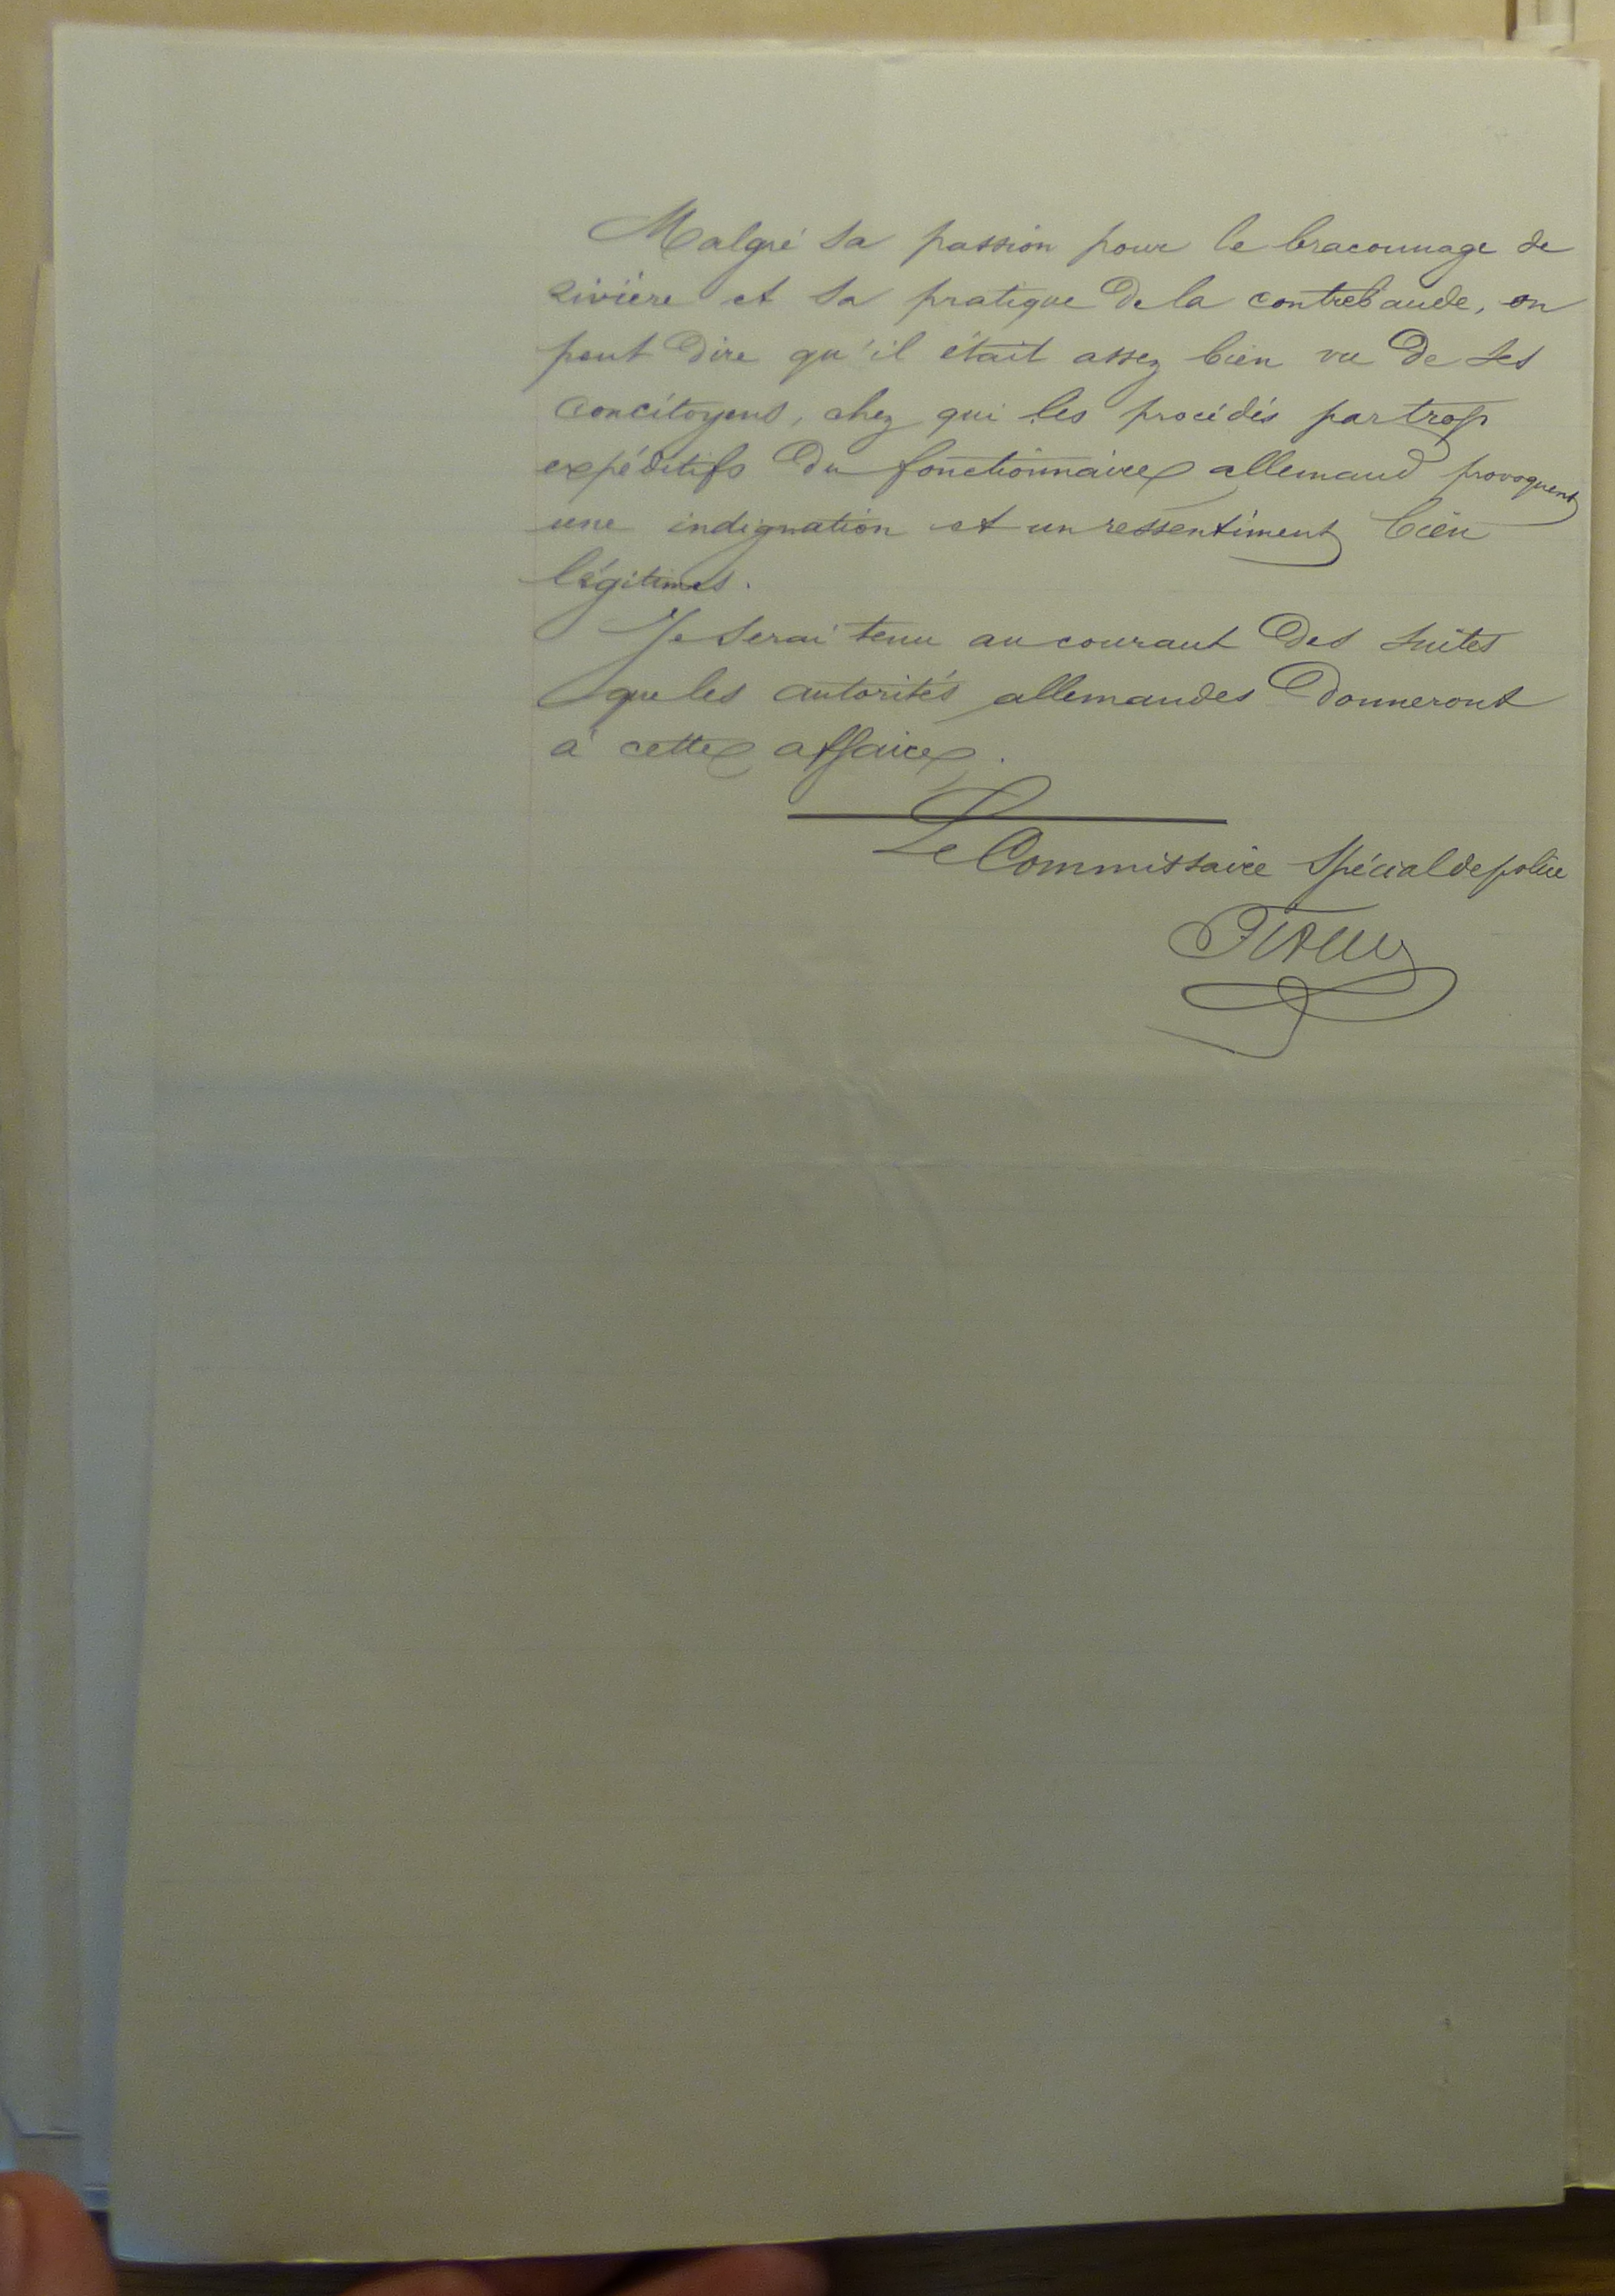 Malgré sa passion pour le braconnage de
rivière et sa pratique de la contrebande, on
peut dire qu'il était assez bien vu de ses
concitoyens, chez qui les procédés par trop
expéditifs du fonctionnaire allemand provoquent
une indignation et un ressentiment bien
légitimes.
Je serai tenu au courant des suites
que les autorités allemandes donneront
à cette affaire.
Le Commissaire Spécial de police